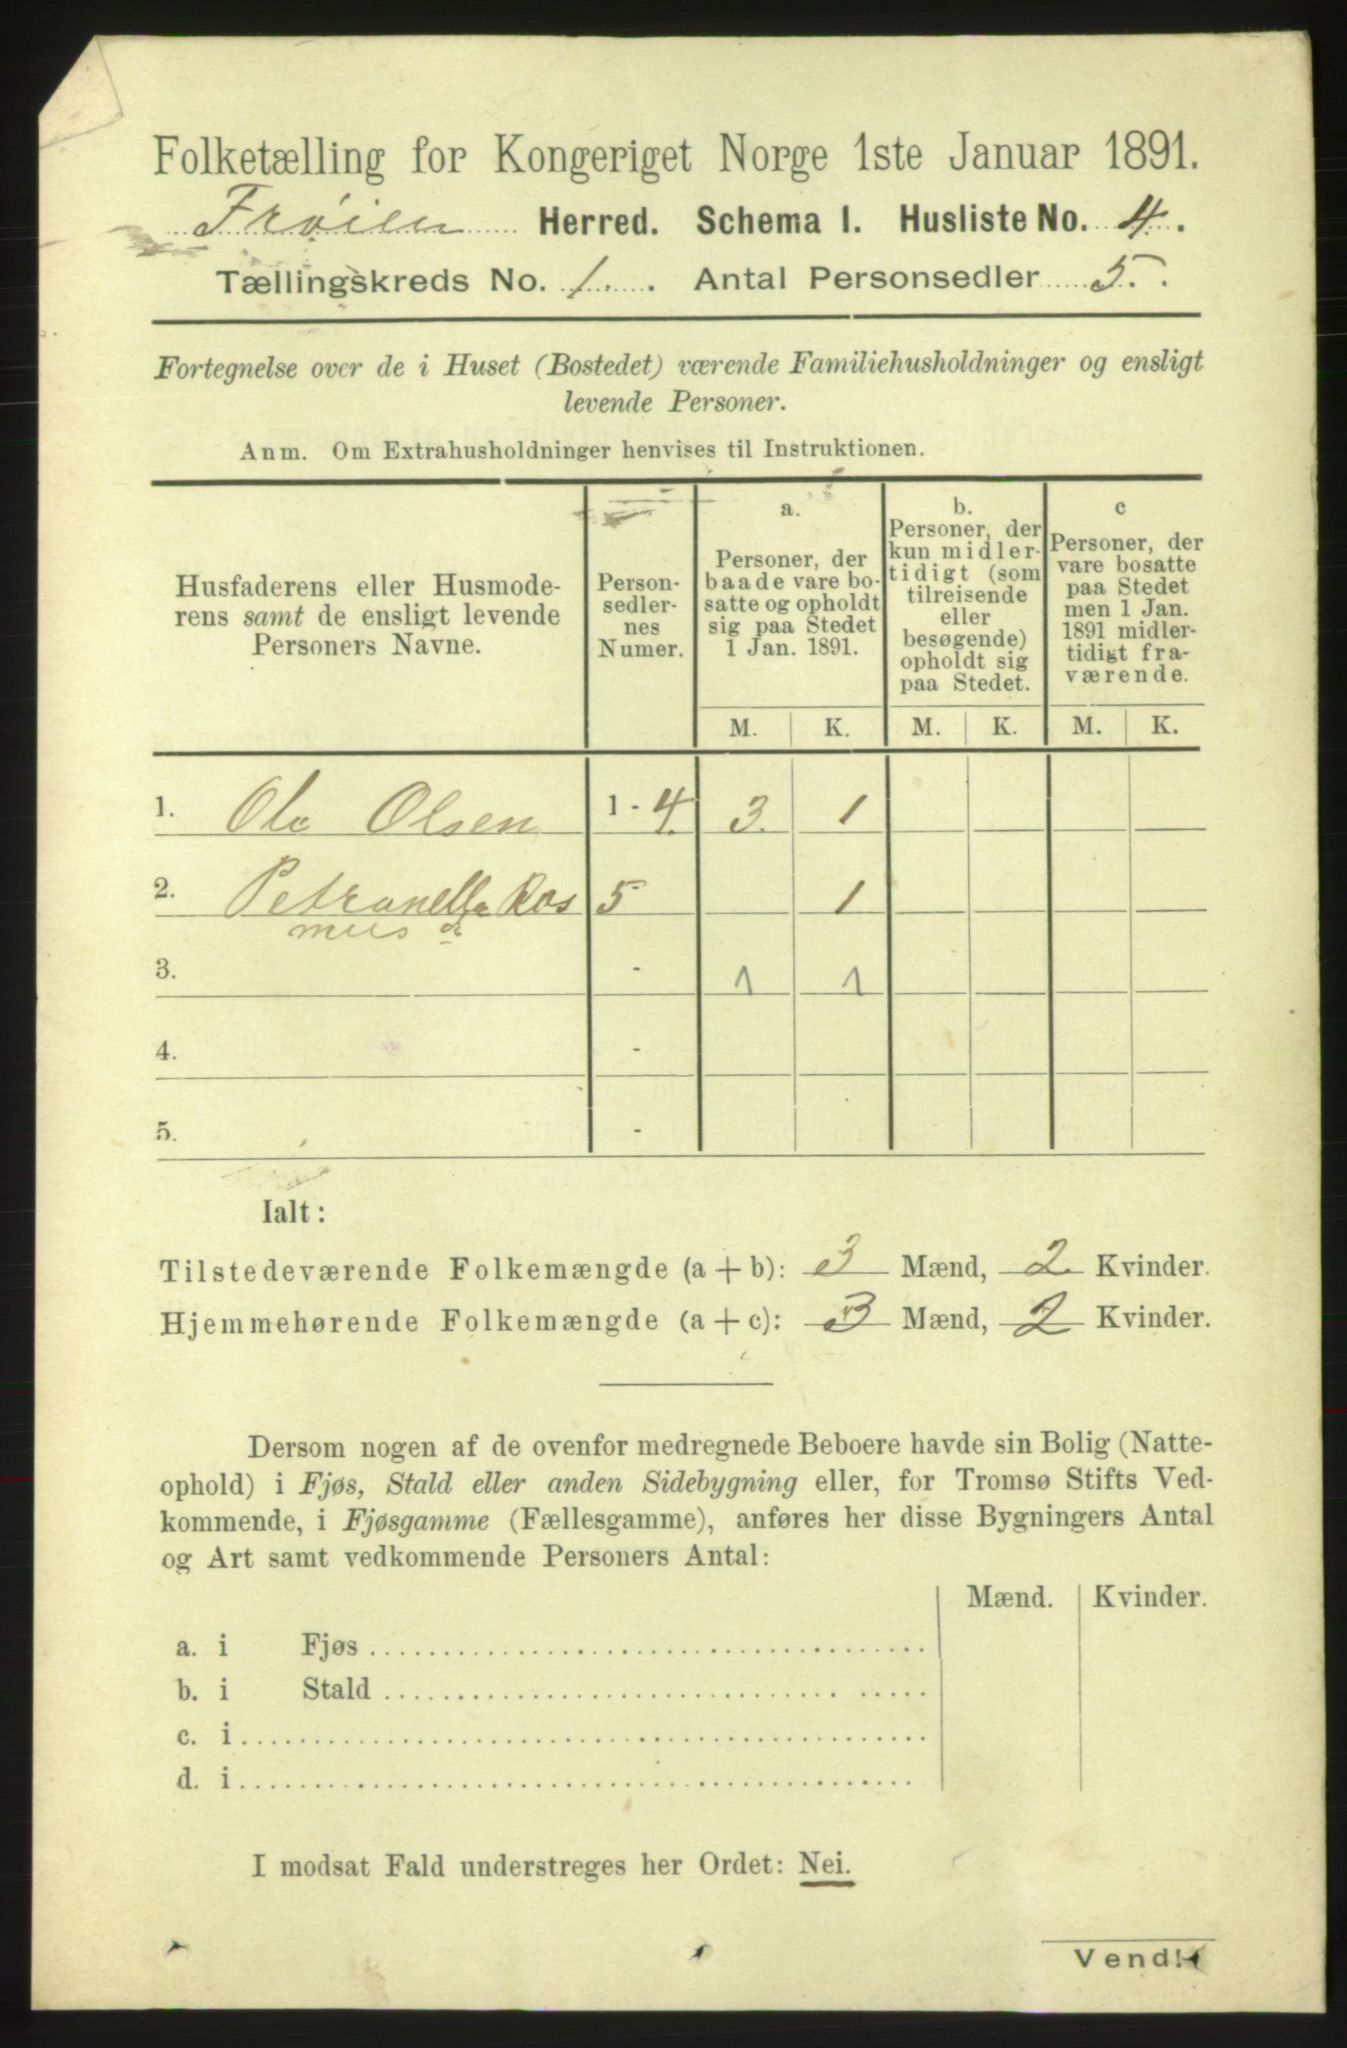 Folketælling for Kongeriget Norge 1ste Januar 1891.
Frøien Herred. Schema I. Husliste No. 4.
Tællingskreds No. 1. Antal Personsedler 5.
Fortegnelse over de i Huset (Bostedet) værende Familiehusholdninger og ensligt
levende Personer.
Anm. Om Extrahusholdninger henvises til Instruktionen.
Husfaderens eller Husmode-
rens samt de ensligt levende
Personers Navne.
Person-
sedler-
nes
Numer.
a.
Personer, der
baade vare bo-
satte og opholdt
sig paa Stedet
1 Jan. 1891.
b.
Personer, der
kun midler-
tidigt (som
tilreisende
eller
besøgende)
opholdt sig
paa Stedet.
c
Personer, der
vare bosatte
paa Stedet
men 1 Jan.
1891 midler-
tidigt fra-
værende.
M. K. M. K. M. K.
1. Ole Olsen 1 - 4. 3. 1
2. Petranella Ras 5 1
mus d
3. - 1 1
4. -
5. -
Ialt:
Tilstedeværende Folkemængde (a + b): 3 Mænd, 2 Kvinder.
Hjemmehørende Folkemængde (a + c): 3 Mænd, 2 Kvinder.
Dersom nogen af de ovenfor medregnede Beboere havde sin Bolig (Natte-
ophold) i Fjøs, Stald eller anden Sidebygning eller, for Tromsø Stifts Ved-
kommende, i Fjøsgamme (Fællesgamme), anføres her disse Bygningers Antal
og Art samt vedkommende Personers Antal:
Mænd. Kvinder.
a. i Fjøs
b. i Stald
c. i
d. i
I modsat Fald understreges her Ordet: Nei.
Vend!